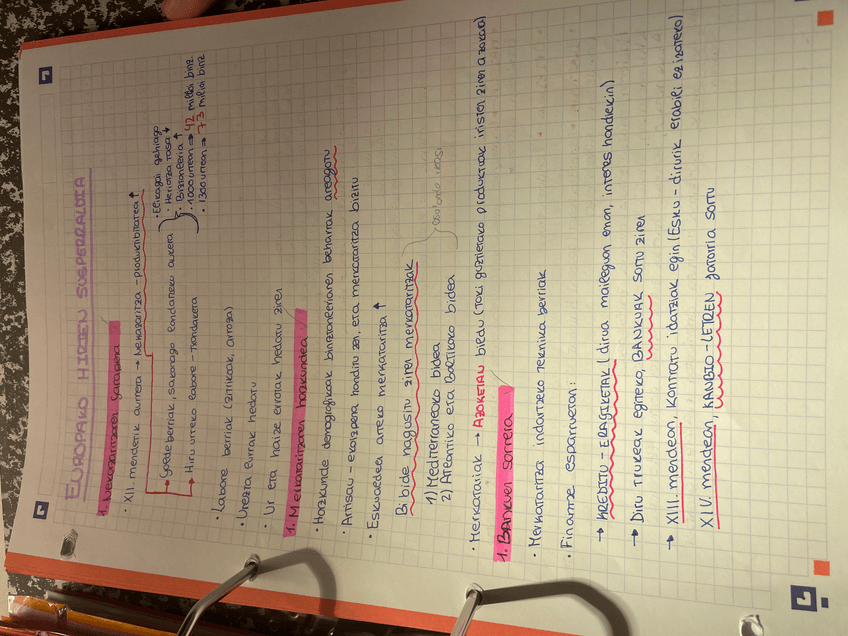 EUROPAKO HIRIEN SUSPERRALDIA
1. Nekazaritzaren garapena
• XII. mendetik aurrera → Nekazaritza - produktibitatea ↑
→ Golde berriak, sakonago landatzeko aukera
→ Hiru urteko labore - txandaketa
• Elikagai gehiago
• Heriotza tasa ↓
• Biztanleria ↑
• 1000 urtean → 42 milioi bizt.
• 1300 urtean → 73 milioi bizt.
• Labore berriak (zitrikoak, arroza)
• Urezta lurrak hedatu
• Ur eta haize errotak hedatu ziren
1. Merkataritzaren hazkundea
• Hazkunde demografikoak biztanleriaren beharrak areagotu
• Artisau - ekoizpena handitu zen, eta merkataritza bizitu
• Eskualdea arteko merkataritza ↑
Bi bide nagusitu ziren merkataritzak
1) Mediterraneoko bidea
2) Atlantiko eta Baltikoko bidea
• Merkatariak → AZOKETAN bildu (Toki guztietako produktuak iristen ziren azokara)
1. Bankuen sorrera
• Merkataritza indartzeko teknika berriak
• Finantza esparruetan:
→ KREDITU - ERAGIKETAK (dirua maileguan eman, interes handiekin)
→ Diru trukeak egiteko, BANKUAK sortu ziren
→ XIII. mendean, kontratu idatziak egin (Esku - dirurik erabili ez izateko)
XIV. mendean, KANBIO - LETREN jatorria sortu